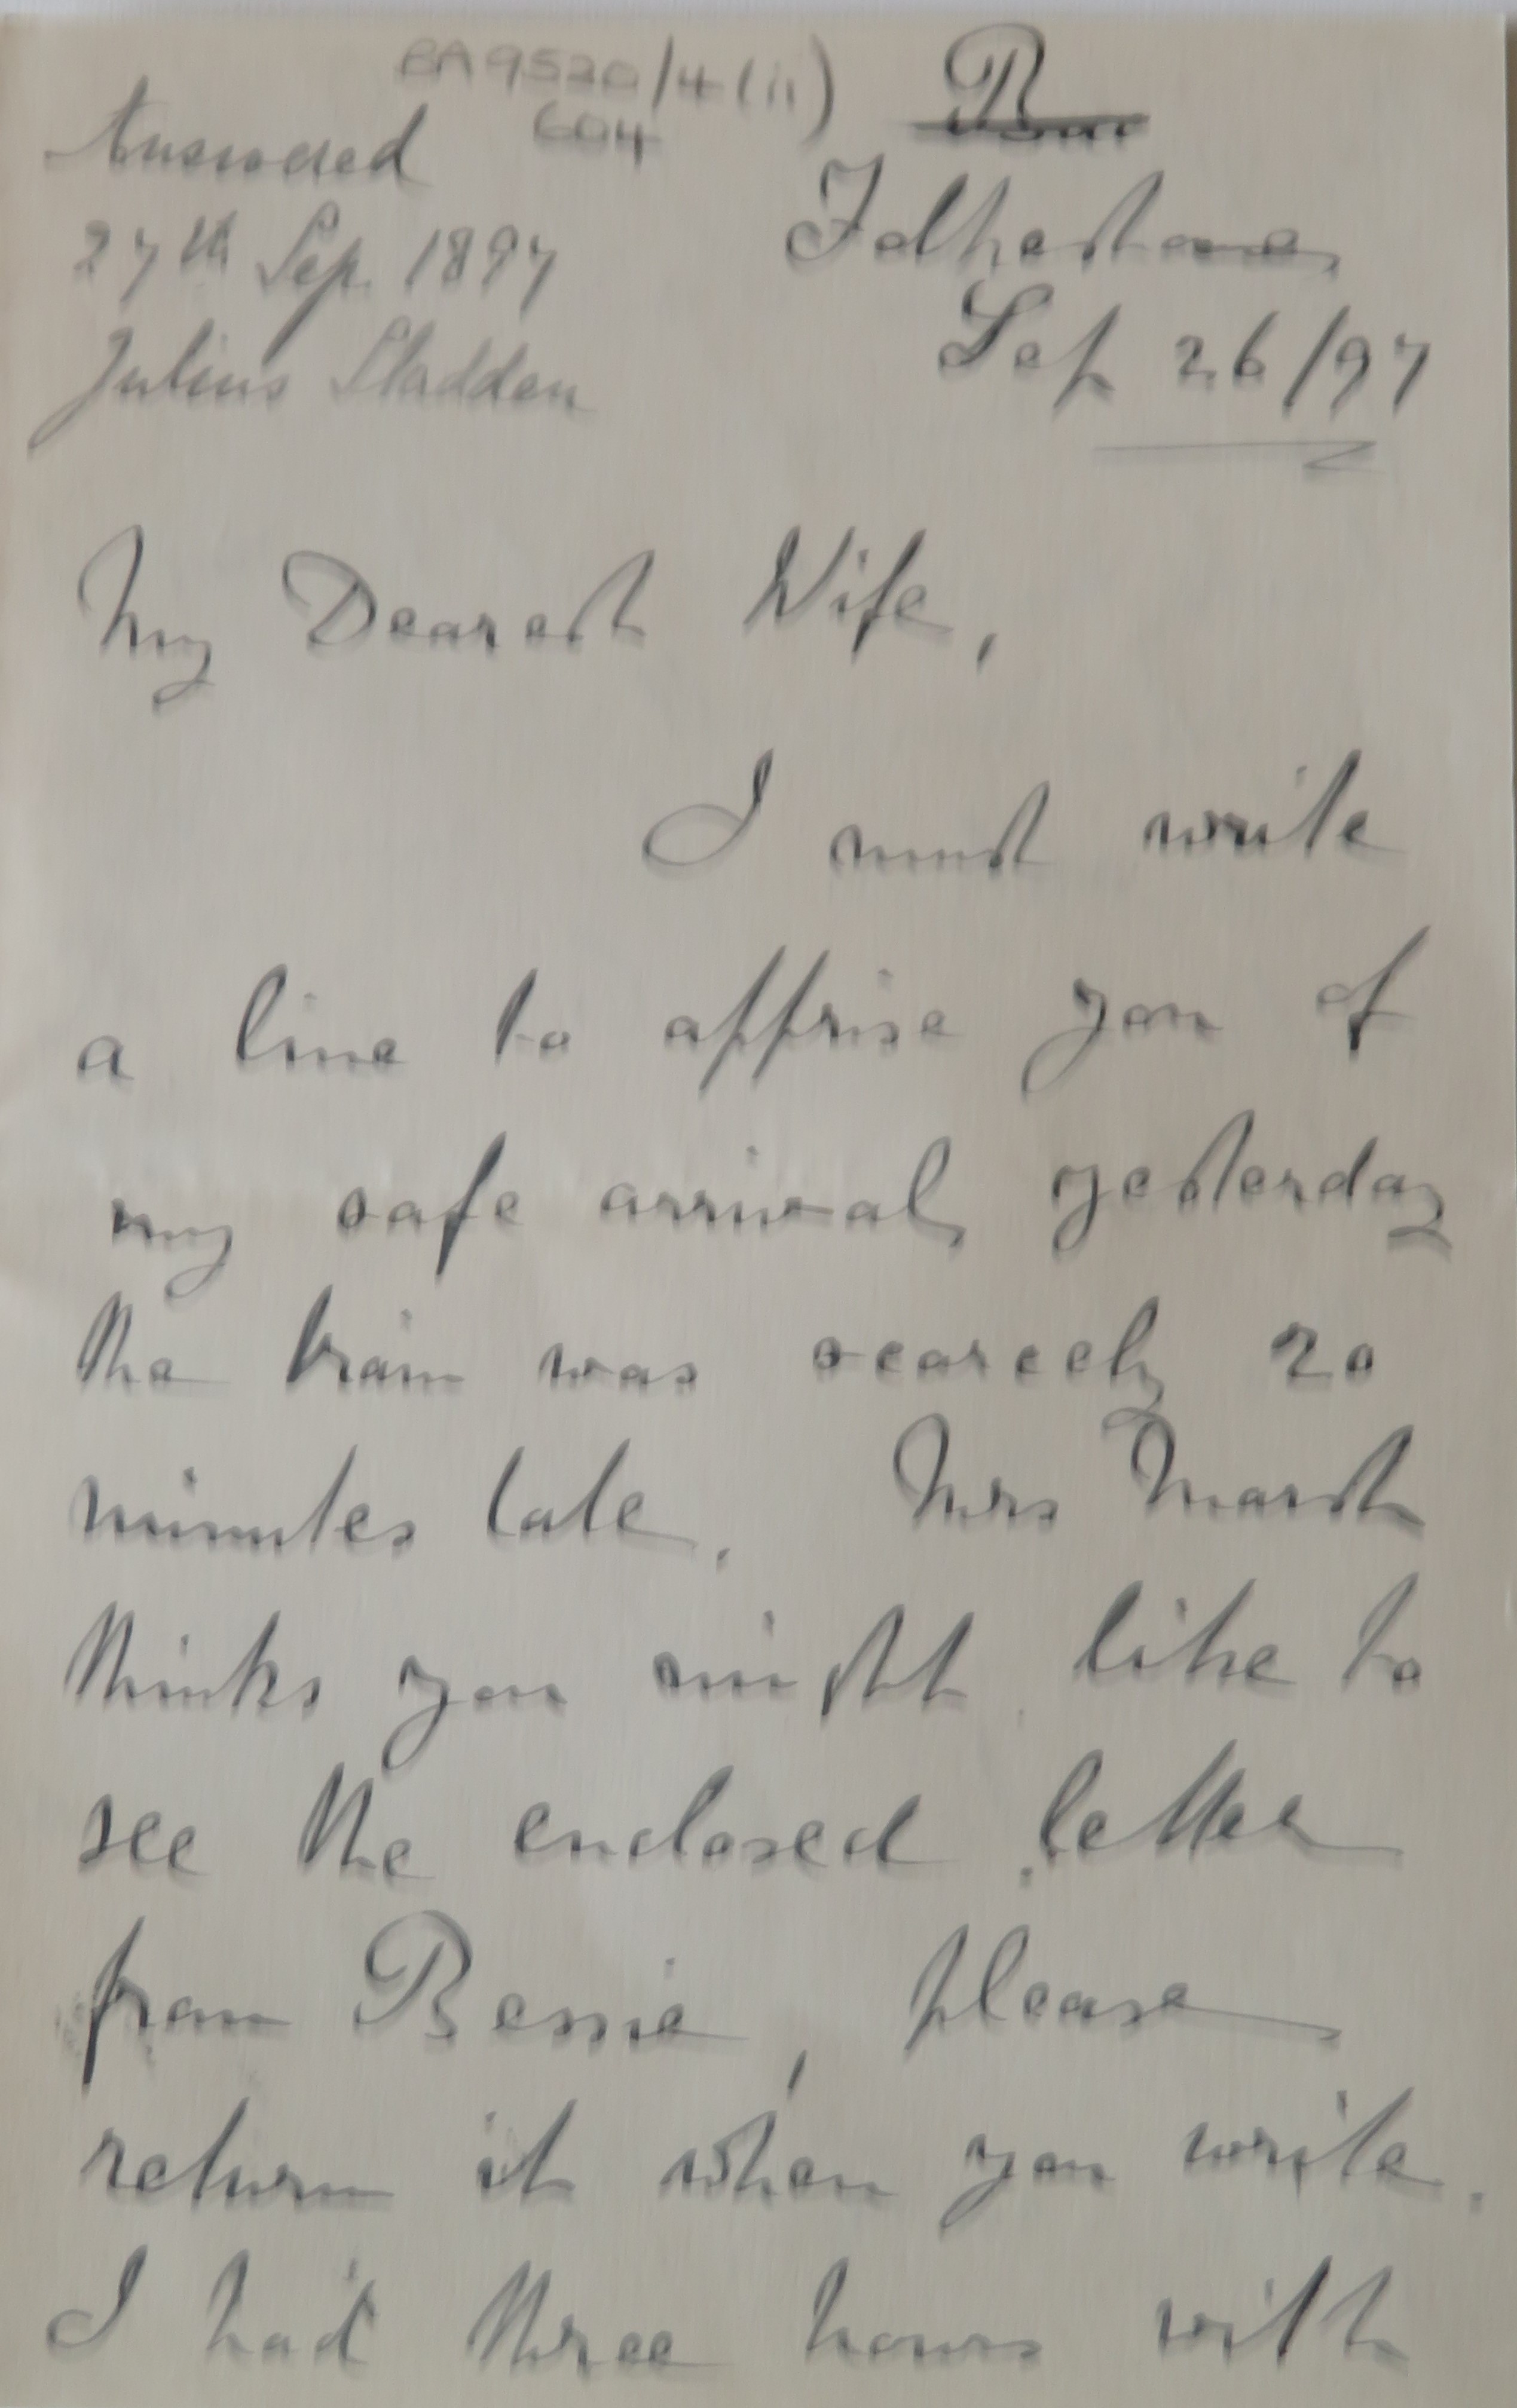 BA9520/4(ii)
604
Answered
27th Sep. 1897
Julius Sladden
Folkestone
Sep 26/97
My Dearest Wife,
I must write
a line to apprise you of
my safe arrival yesterday
the train was scarcely 20
minutes late. Mrs Marsh
thinks you might like to
see the enclosed letter
from Bessie, please
return it when you write.
I had three hours with